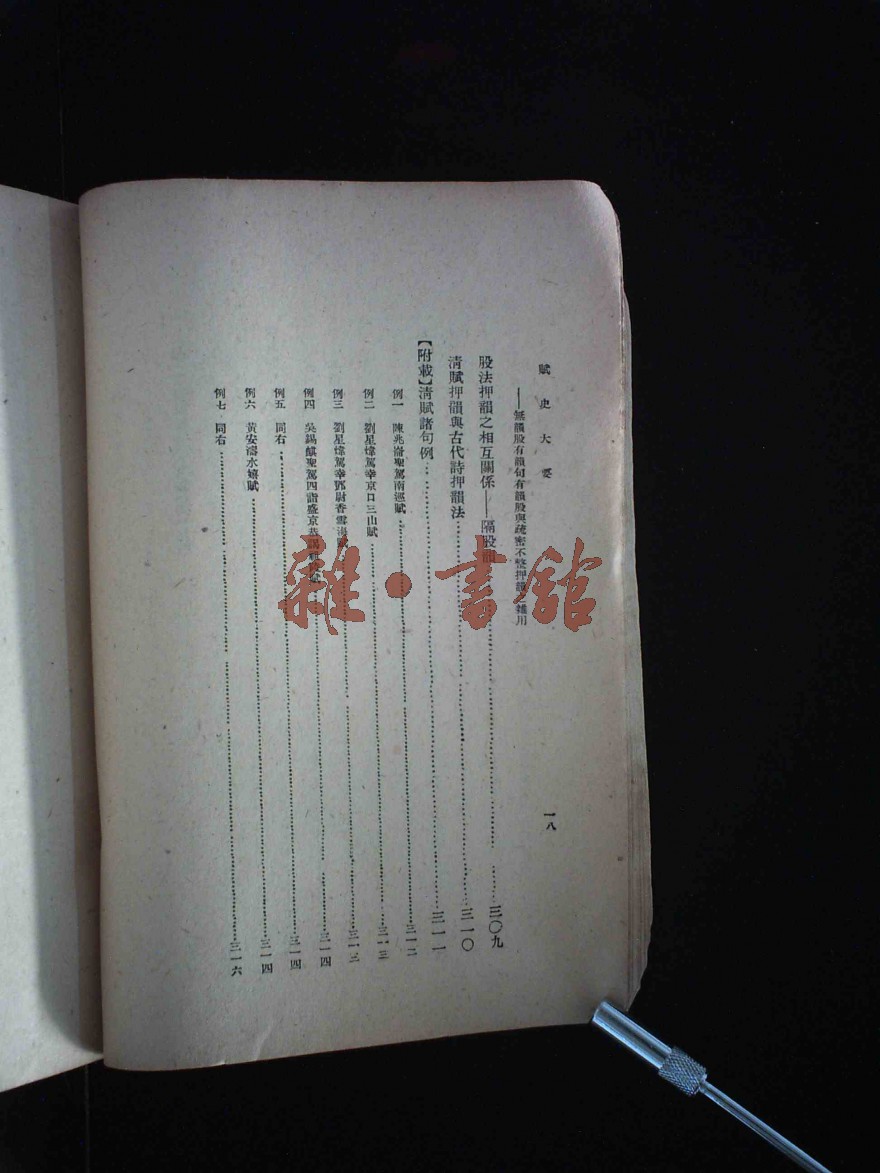 賦史大要
一八
——無韻股有韻句有韻股與疏密不整押韻之雜用
股法押韻之相互關係——隔股……三〇九
清賦押韻與古代詩押韻法……三一〇
【附載】清賦諸句例……三一一
例一 陳兆崙聖駕南巡賦……三一二
例二 劉星煒駕幸京口三山賦……三一三
例三 劉星煒駕幸鄧尉香雪海賦……三一三
例四 吳錫麒聖駕四詣盛京恭謁……三一四
例五 同右……三一四
例六 黃安濤水嬉賦……三一四
例七 同右……三一六
雜·書館